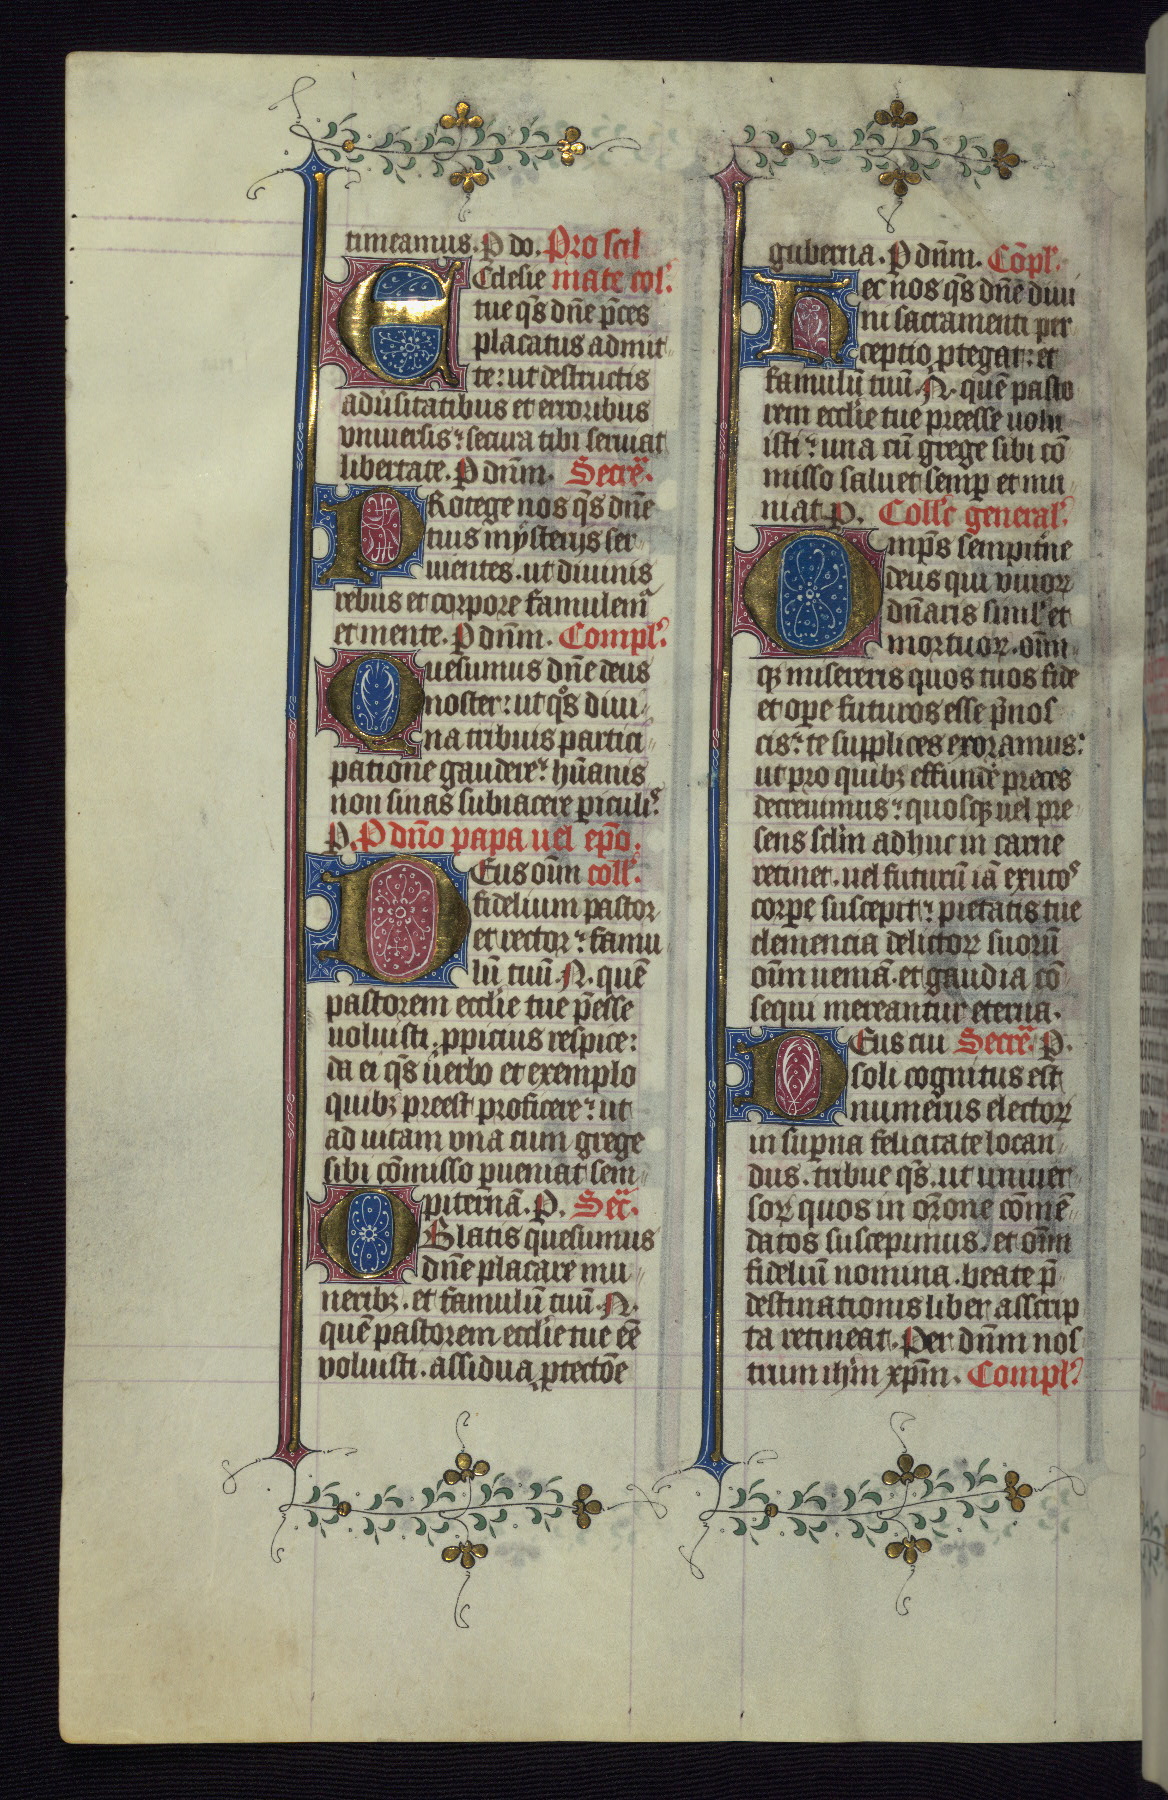 timeamus. P do. Pro scil
Ecclesie mate col'.
tue qs dne pces
placatus admit
te: ut destructis
adusitatibus et erroribus
vniuersis: secura tibi seruiat
libertate. P dnm. Secre.
PRotege nos qs dne
tuis mysterijs ser
uientes. ut diuinis
rebus et corpore famulem
et mente. P dnm. Compl'.
Quesumus dne deus
noster: ut qos diui
na tribuis partici
patione gaudere: humanis
non sinas subiacere piculis
P. P dno papa uel epo.
DEus oim coll'.
fidelium pastor
et rector: famu
lu tuu .N. que
pastorem ecclie tue pesse
uoluisti. ppicius respice:
da ei qs uerbo et exemplo
quibz preest proficere: ut
ad uitam vna cum grege
sibi comisso pueniat sem
piterna. P. Secr.
OBlatis quesumus
dne placare mu
neribz. et famulu tuu .N.
que pastorem ecclie tue ee
voluisti. assidua ptectoe
guberna. P dnm. Copl'.
Hec nos qs dne diui
ni sacramenti per
ceptio ptegat: et
famulu tuu .N. que pasto
rem ecclie tue preesse uolu
isti: una cu grege sibi co
misso saluet semp et mu
niat. P. Collc general'.
Omps sempitne
deus qui viuor
dnaris simul et
mortuor. oim
qz misereris quos tuos fide
et ope futuros esse pnos
cis: te supplices exoramus:
ut pro quibz effunde preces
decreuimus: quosqz uel pre
sens sclm adhuc in carne
retinet. uel futuru ia exutos
corpe suscepit: pietatis tue
clemencia delictor suoru
oim uenia. et gaudia co
sequi mereantur eterna.
DEus cui Secre. P.
soli cognitus est
numerus elector
in supna felicitate locan
dus. tribue qs. ut uniuer
sor quos in orone come
datos suscepimus. et oim
fideliu nomina. beate p
destinationis liber asscrip
ta retineat. Per dnm nos
trum ihm xpm. Compl'.